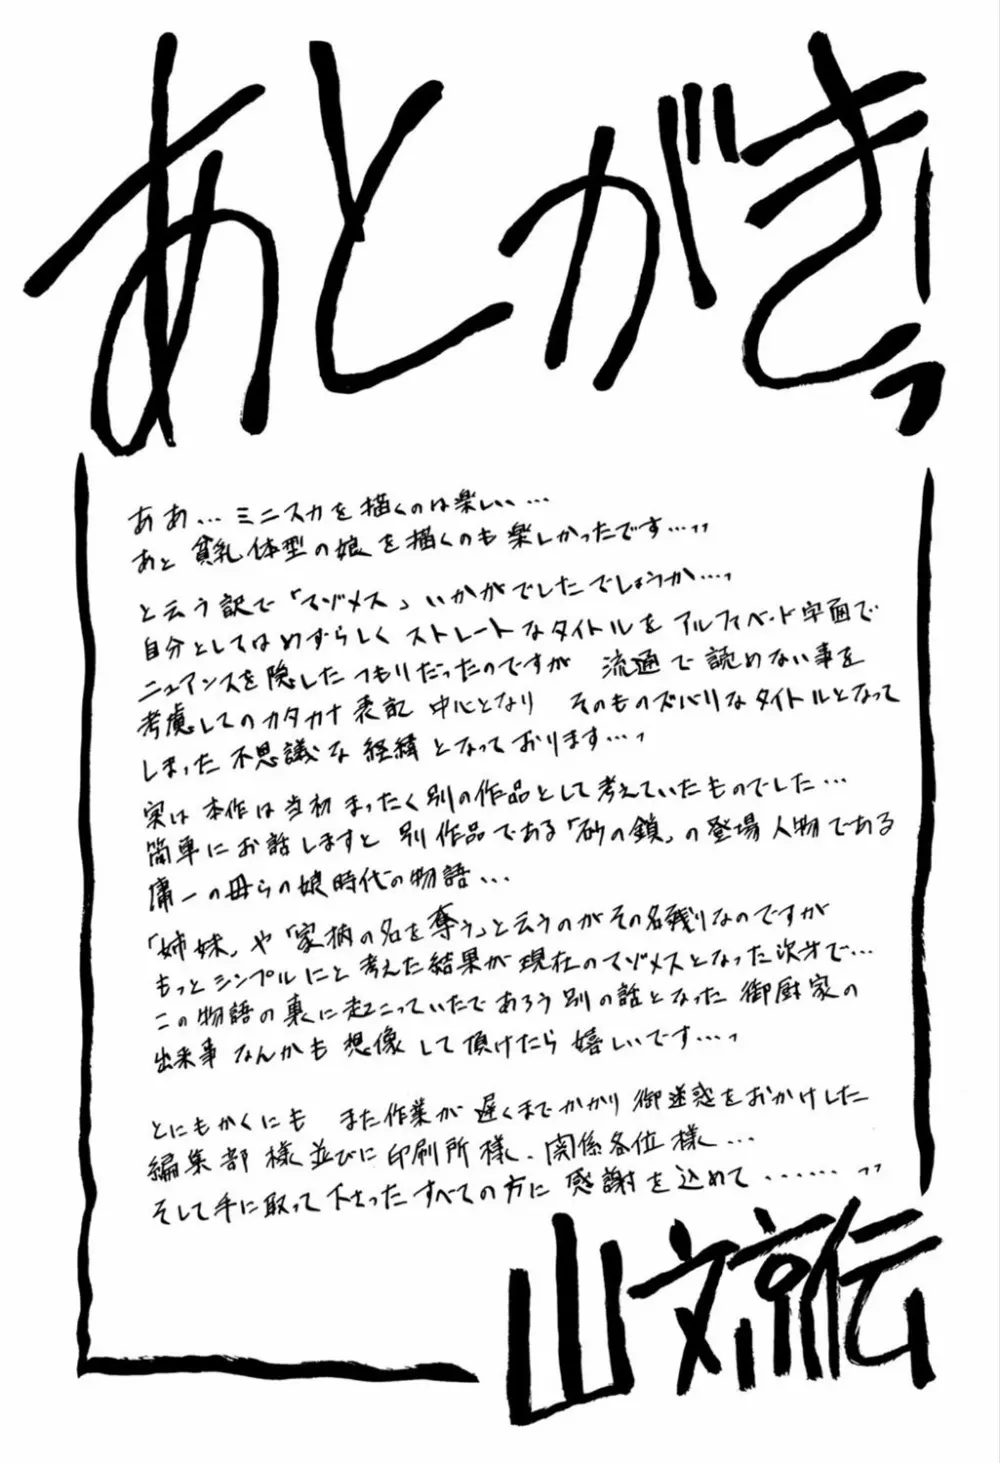 あとがきっ
ああ…ミニスカを描くのは楽しい…
あと 貧乳体型の娘を描くのも楽しかったです…っっ
と云う訳で「マゾメス」いかがでしたでしょうか…っ
自分としてはめずらしくストレートなタイトルをアルファベード字面で
ニュアンスを隠したつもりだったのですが 流通で読めない事を
考慮してのカタカナ表記中心となり そのものズバリなタイトルとなって
しまった不思議な経緯となっております…っ
実は本作は当初まったく別の作品として考えていたものでした…
簡単にお話しますと 別作品である「砂の鎖」の登場人物である
庸一の母らの娘時代の物語…
「姉妹」や「家柄の名を奪う」と云うのがその名残りなのですが
もっとシンプルにと考えた結果が現在のマゾメスとなった次才で…
この物語の裏に起こっていたであろう別の話となった 御厨家の
出来事なんかも想像して頂けたら嬉しいです…っ
とにもかくにも また作業が遅くまでかかり御迷惑をおかけした
編集部様並びに印刷所様、関係各位様…
そして手に取って下さったすべての方に感謝を込めて……っっ
山文京伝